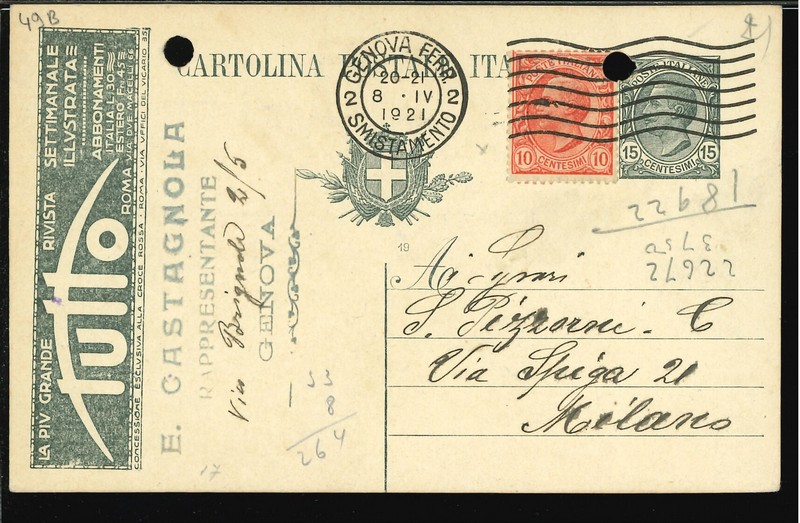 49B
LA PIV GRANDE RIVISTA SETTIMANALE ILLVSTRATA
tutto
ABBONAMENTI
ITALIA L. 30
ESTERO Fr. 45
ROMA · VIA DVE MACELLI
CONCESSIONE ESCLUSIVA ALLA CROCE ROSSA · ROMA · VIA UFFICI DEL VICARIO 35
CARTOLINA POSTALE ITA
GENOVA FERR.
20-21
8 · IV
1921
2 2
SMISTAMENTO
POSTE ITALIANE
10 CENTESIMI 10
POSTE ITALIANE
15 CENTESIMI 15
E. CASTAGNOLA
RAPPRESENTANTE
Via Brignole 2/5
GENOVA
19
A
S. Pizzorni - C
Via Spiga 21
Milano
22681
3750
22672
33
8
264
17